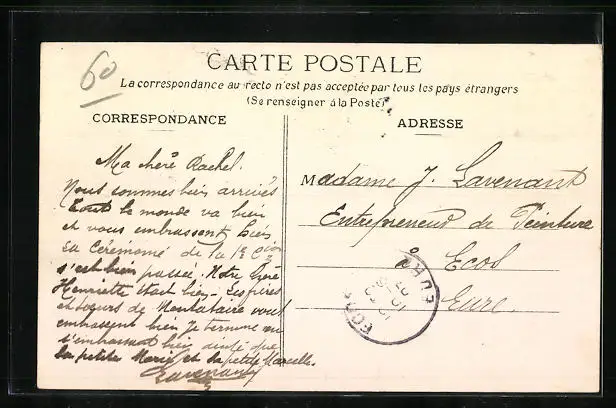 60
CARTE POSTALE
La correspondance au recto n'est pas acceptée par tous les pays étrangers
(Se renseigner à la Poste)
CORRESPONDANCE
ADRESSE
Ma chère Rachel.
Nous sommes bien arrivés
tout le monde va bien
et vous embrassent bien
La Cérémonie de la 1e Cion
s'est bien passée. Notre chère
Henriette était bien. Les frères
et soeurs de Montataire vous
embrassent bien Je termine en
t'embrassant bien ainsi que
la petite Marie et la petite Marcelle.
Lavenant
Madame J. Lavenant
Entrepreneur de Peinture
à Ecos
Eure.
ECOS
EURE